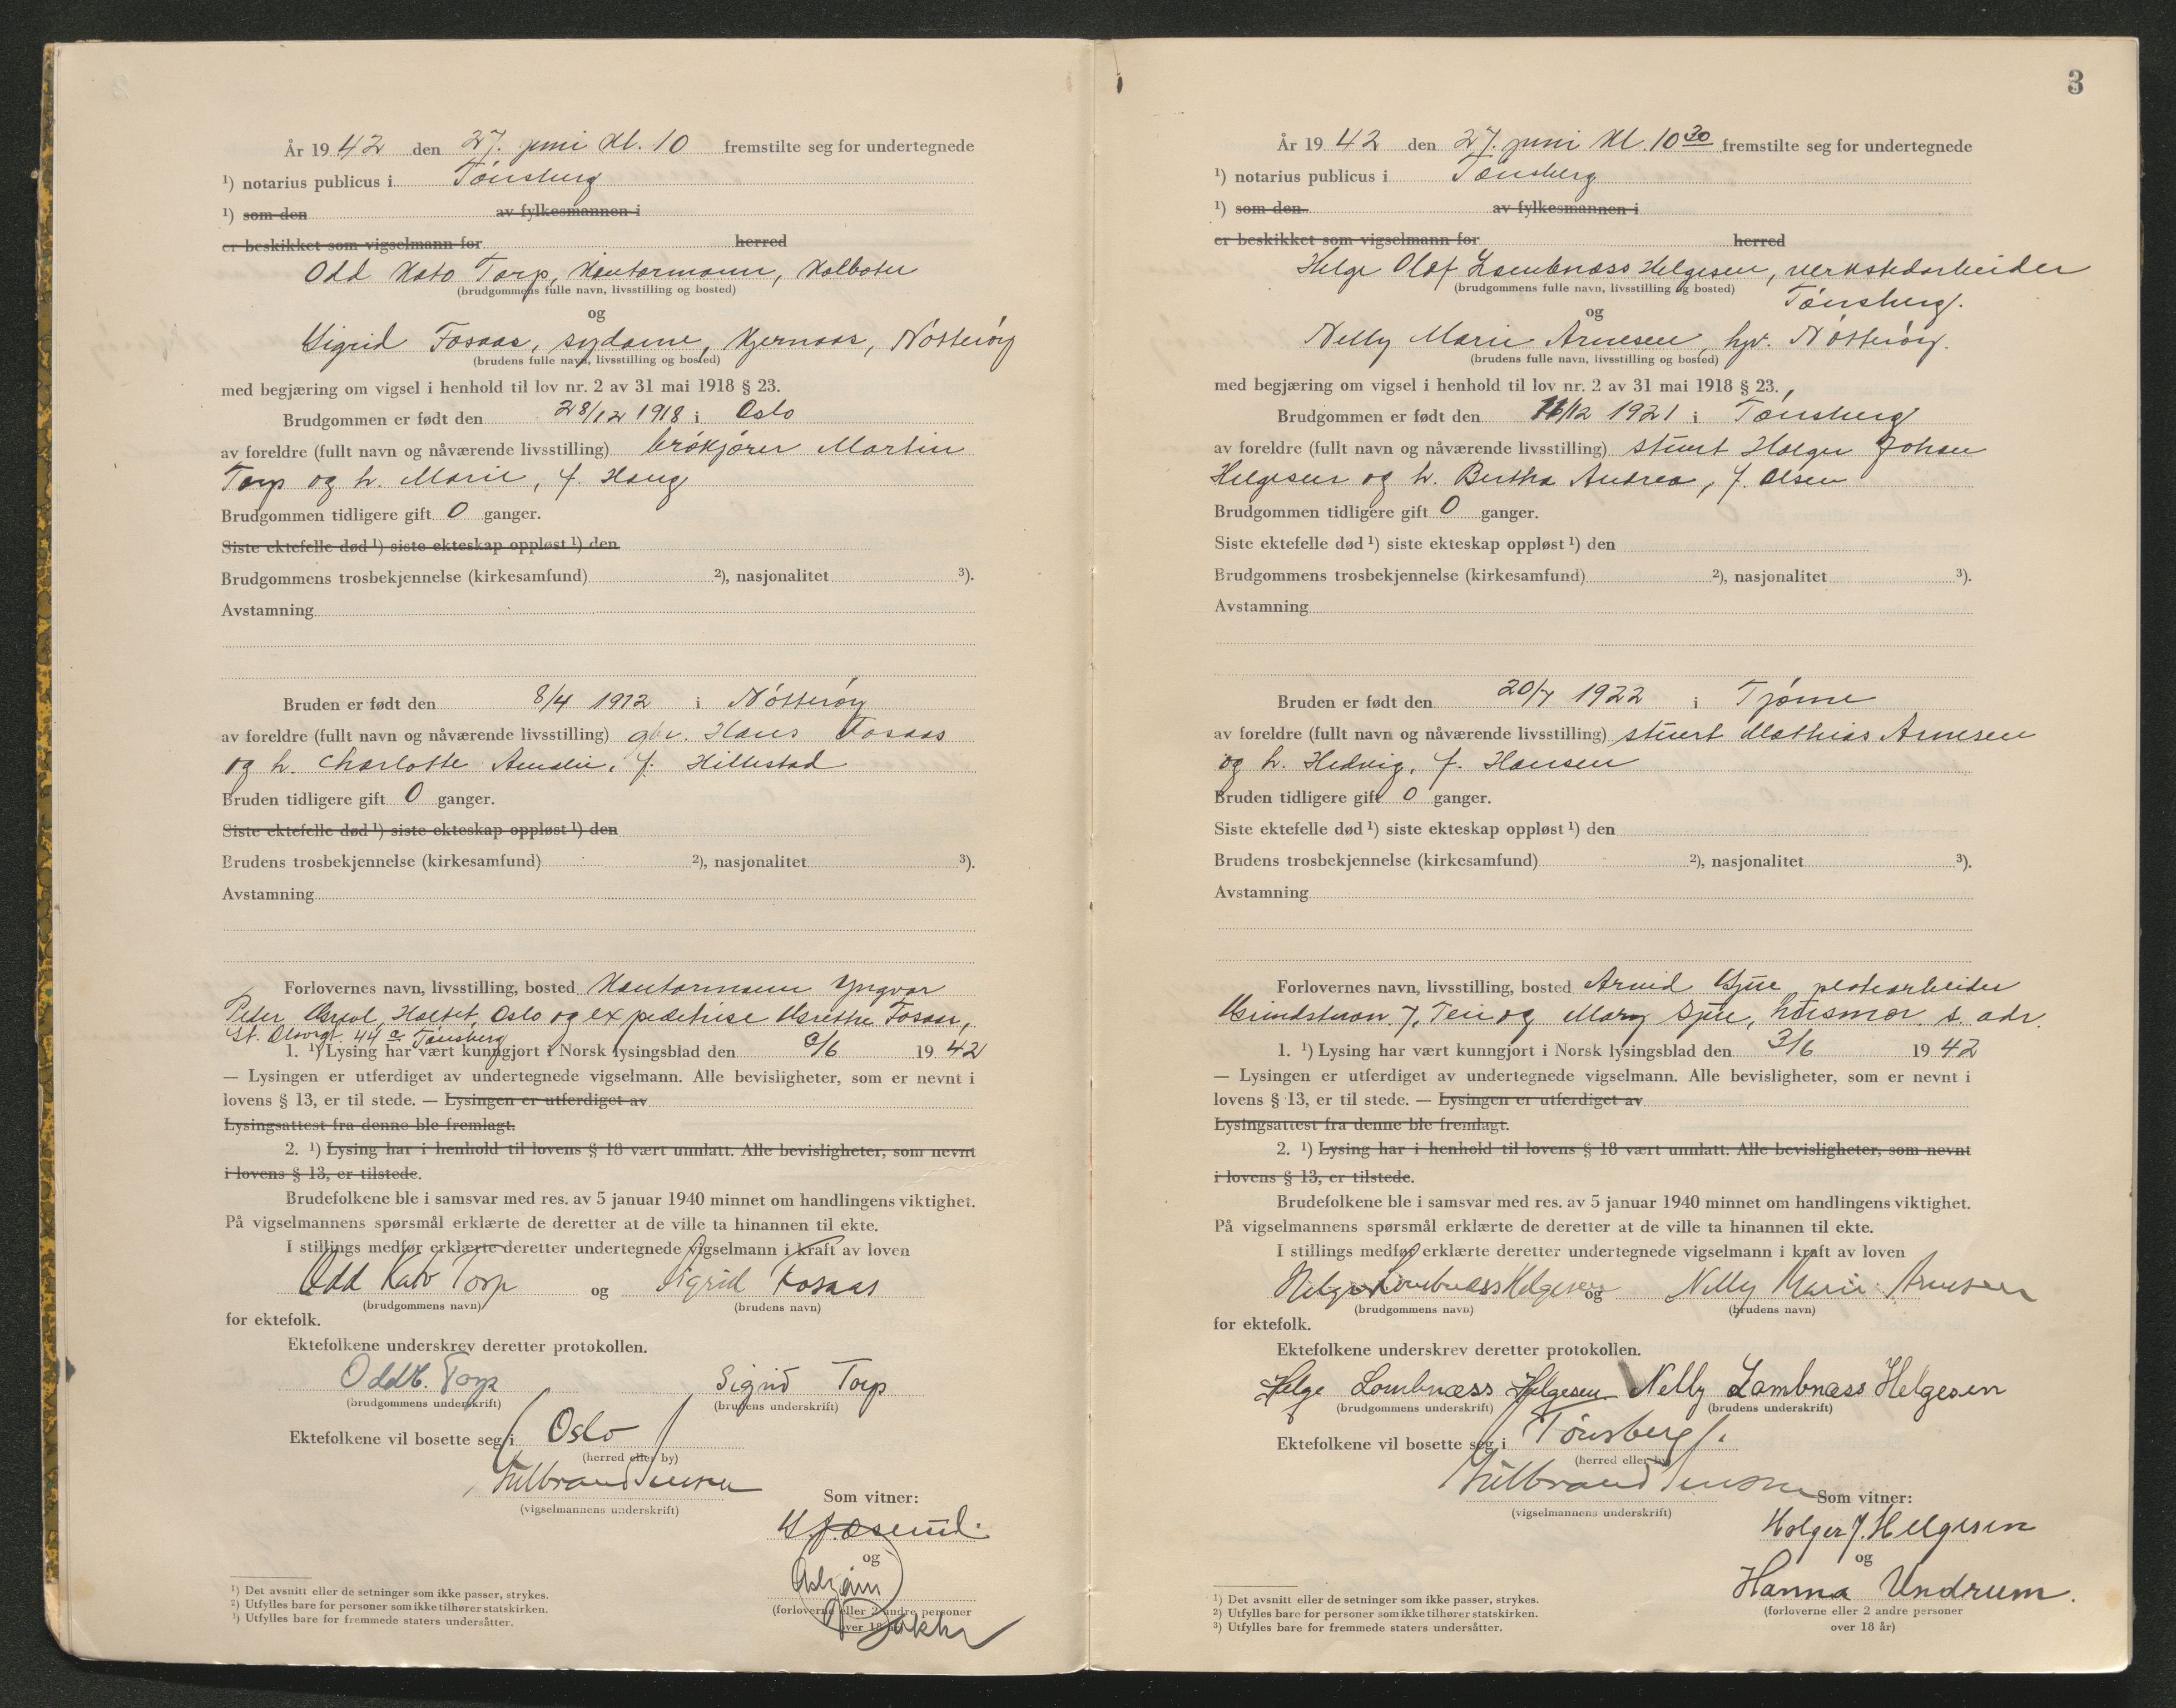 År 19 42 den 27. juni kl. 10 fremstilte seg for undertegnede
¹) notarius publicus i Tönsberg
¹) som den av fylkesmannen i
er beskikket som vigselmann for herred
Odd Kato Torp, kontormann, Kolbotn
(brudgommens fulle navn, livsstilling og bosted)
og
Sigrid Fosaas, sydame, Kjernaas, Nötteröy
(brudens fulle navn, livsstilling og bosted)
med begjæring om vigsel i henhold til lov nr. 2 av 31 mai 1918 § 23.
Brudgommen er født den 28/12 1918 i Oslo
av foreldre (fullt navn og nåværende livsstilling) brökjörer Martin
Torp og h. Marie, f. Haug
Brudgommen tidligere gift 0 ganger.
Siste ektefelle død ¹) siste ekteskap oppløst ¹) den
Brudgommens trosbekjennelse (kirkesamfund) ²), nasjonalitet ³).
Avstamning
Bruden er født den 8/4 1912 i Nötteröy
av foreldre (fullt navn og nåværende livsstilling) gbr. Hans Fosaas
og h. Charlotte Amalie, f. Hillestad
Bruden tidligere gift 0 ganger.
Siste ektefelle død ¹) siste ekteskap oppløst ¹) den
Brudens trosbekjennelse (kirkesamfund) ²), nasjonalitet ³).
Avstamning
Forlovernes navn, livsstilling, bosted Kontormann Yngvar
Peder Holtet, Oslo og expeditrise Grethe Fosaas,
St. Olavsgt. 44 a Tønsberg
1. ¹) Lysing har vært kunngjort i Norsk lysingsblad den 3/6 19 42
— Lysingen er utferdiget av undertegnede vigselmann. Alle bevisligheter, som er nevnt i
lovens § 13, er til stede. — Lysingen er utferdiget av
Lysingsattest fra denne ble fremlagt.
2. ¹) Lysing har i henhold til lovens § 18 vært unnlatt. Alle bevisligheter, som nevnt
i lovens § 13, er tilstede.
Brudefolkene ble i samsvar med res. av 5 januar 1940 minnet om handlingens viktighet.
På vigselmannens spørsmål erklærte de deretter at de ville ta hinannen til ekte.
I stillings medfør erklærte deretter undertegnede vigselmann i kraft av loven
Odd Kato Torp og Sigrid Fosaas
(brudgommens navn) (brudens navn)
for ektefolk.
Ektefolkene underskrev deretter protokollen.
Odd K. Torp Sigrid Torp
(brudgommens underskrift) (brudens underskrift)
Ektefolkene vil bosette seg i Oslo
(herred eller by)
(vigselmannens underskrift)
Som vitner:
og
(forloverne eller 2 andre personer
over 18 år)
¹) Det avsnitt eller de setninger som ikke passer, strykes.
²) Utfylles bare for personer som ikke tilhører statskirken.
³) Utfylles bare for fremmede staters undersåtter.
3
År 19 42 den 27. juni kl. 10 30 fremstilte seg for undertegnede
¹) notarius publicus i Tønsberg
¹) som den av fylkesmannen i
er beskikket som vigselmann for herred
Helge Olaf Lambnæss Helgesen, verkstedarbeider
(brudgommens fulle navn, livsstilling og bosted) Tönsberg.
og
Nelly Marie Arnesen, hpr. Nötteröy.
(brudens fulle navn, livsstilling og bosted)
med begjæring om vigsel i henhold til lov nr. 2 av 31 mai 1918 § 23.
Brudgommen er født den /12 1921 i Tønsberg
av foreldre (fullt navn og nåværende livsstilling) stuert Holger Johan
Helgesen og h. Bertha Andrea, f. Olsen
Brudgommen tidligere gift 0 ganger.
Siste ektefelle død ¹) siste ekteskap oppløst ¹) den
Brudgommens trosbekjennelse (kirkesamfund) ²), nasjonalitet ³).
Avstamning
Bruden er født den 20/7 1922 i Tjöme
av foreldre (fullt navn og nåværende livsstilling) stuert Mathias Arnesen
og h. Hedvig, f. Hansen
Bruden tidligere gift 0 ganger.
Siste ektefelle død ¹) siste ekteskap oppløst ¹) den
Brudens trosbekjennelse (kirkesamfund) ²), nasjonalitet ³).
Avstamning
Forlovernes navn, livsstilling, bosted Arvid Gjue, platearbeider
Grindstuvn. 7, Teie og Mary Gjue, husmor s. adr.
1. ¹) Lysing har vært kunngjort i Norsk lysingsblad den 3/6 19 42
— Lysingen er utferdiget av undertegnede vigselmann. Alle bevisligheter, som er nevnt i
lovens § 13, er til stede. — Lysingen er utferdiget av
Lysingsattest fra denne ble fremlagt.
2. ¹) Lysing har i henhold til lovens § 18 vært unnlatt. Alle bevisligheter, som nevnt
i lovens § 13, er tilstede.
Brudefolkene ble i samsvar med res. av 5 januar 1940 minnet om handlingens viktighet.
På vigselmannens spørsmål erklærte de deretter at de ville ta hinannen til ekte.
I stillings medfør erklærte deretter undertegnede vigselmann i kraft av loven
Helge Lambnæss Helgesen og Nelly Marie Arnesen
(brudgommens navn) (brudens navn)
for ektefolk.
Ektefolkene underskrev deretter protokollen.
Helge Lambnæss Helgesen Nelly Lambnæss Helgesen
(brudgommens underskrift) (brudens underskrift)
Ektefolkene vil bosette seg i Tønsberg.
(herred eller by)
(vigselmannens underskrift)
Som vitner:
Holger J. Helgesen
og
Hanna Undrum.
(forloverne eller 2 andre personer
over 18 år)
¹) Det avsnitt eller de setninger som ikke passer, strykes.
²) Utfylles bare for personer som ikke tilhører statskirken.
³) Utfylles bare for fremmede staters undersåtter.